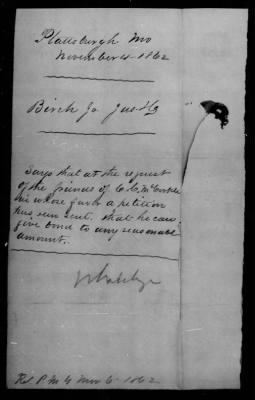 Plattsburgh Mo
November 4 - 1862
Birch Jr Jas H
Says that at the request
of the friends of C. C. McCorkle
in whose favor a petition
has been sent. that he can
give bond to any reasonable
amount.
Rcd P. M. G Nov 6 - 1862